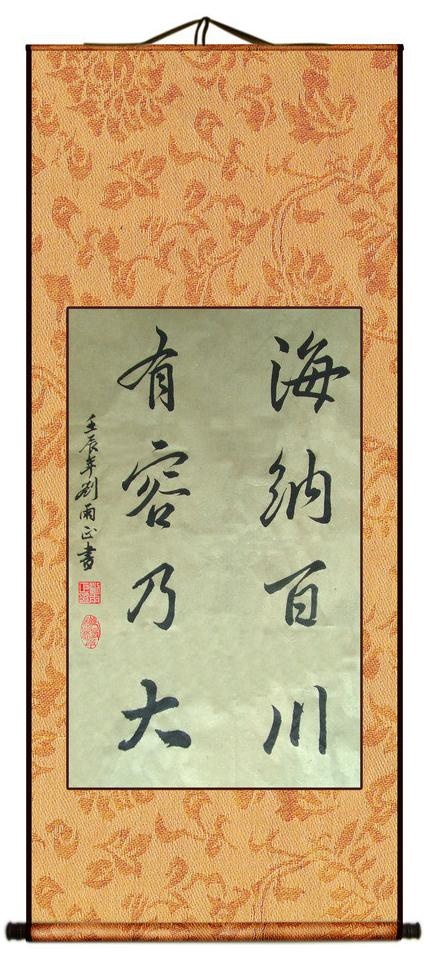 海纳百川
有容乃大
壬辰年刘雨正書